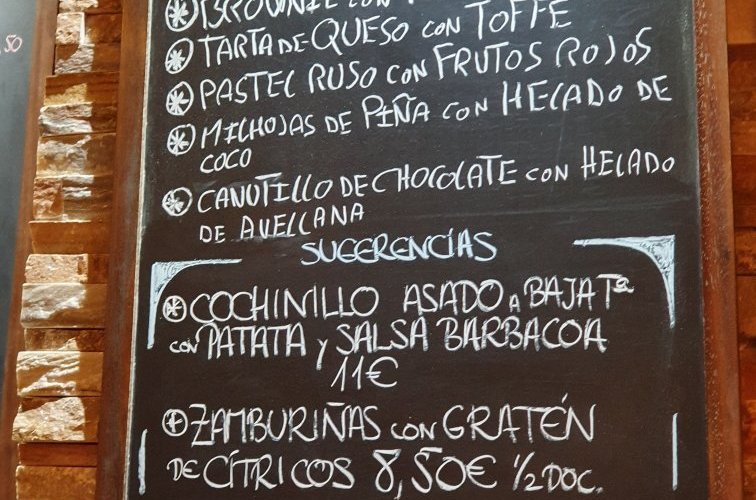 50
BROWNIE CON
TARTA DE QUESO CON TOFFE
PASTEL RUSO CON FRUTOS ROJOS
MILHOJAS DE PIÑA CON HELADO DE
COCO
CANUTILLO DE CHOCOLATE CON HELADO
DE AVELLANA
SUGERENCIAS
COCHINILLO ASADO A BAJA Tª
CON PATATA Y SALSA BARBACOA
11€
ZAMBURIÑAS CON GRATÉN
DE CÍTRICOS 8,50€ 1/2 DOC.